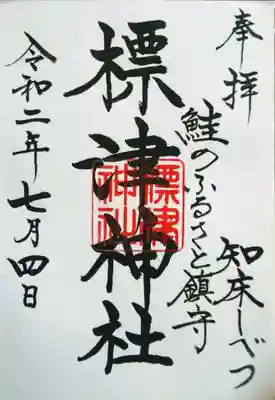 奉拝
知床しべつ
鮭のふるさと鎮守
標津神社
標津神社
令和二年七月四日